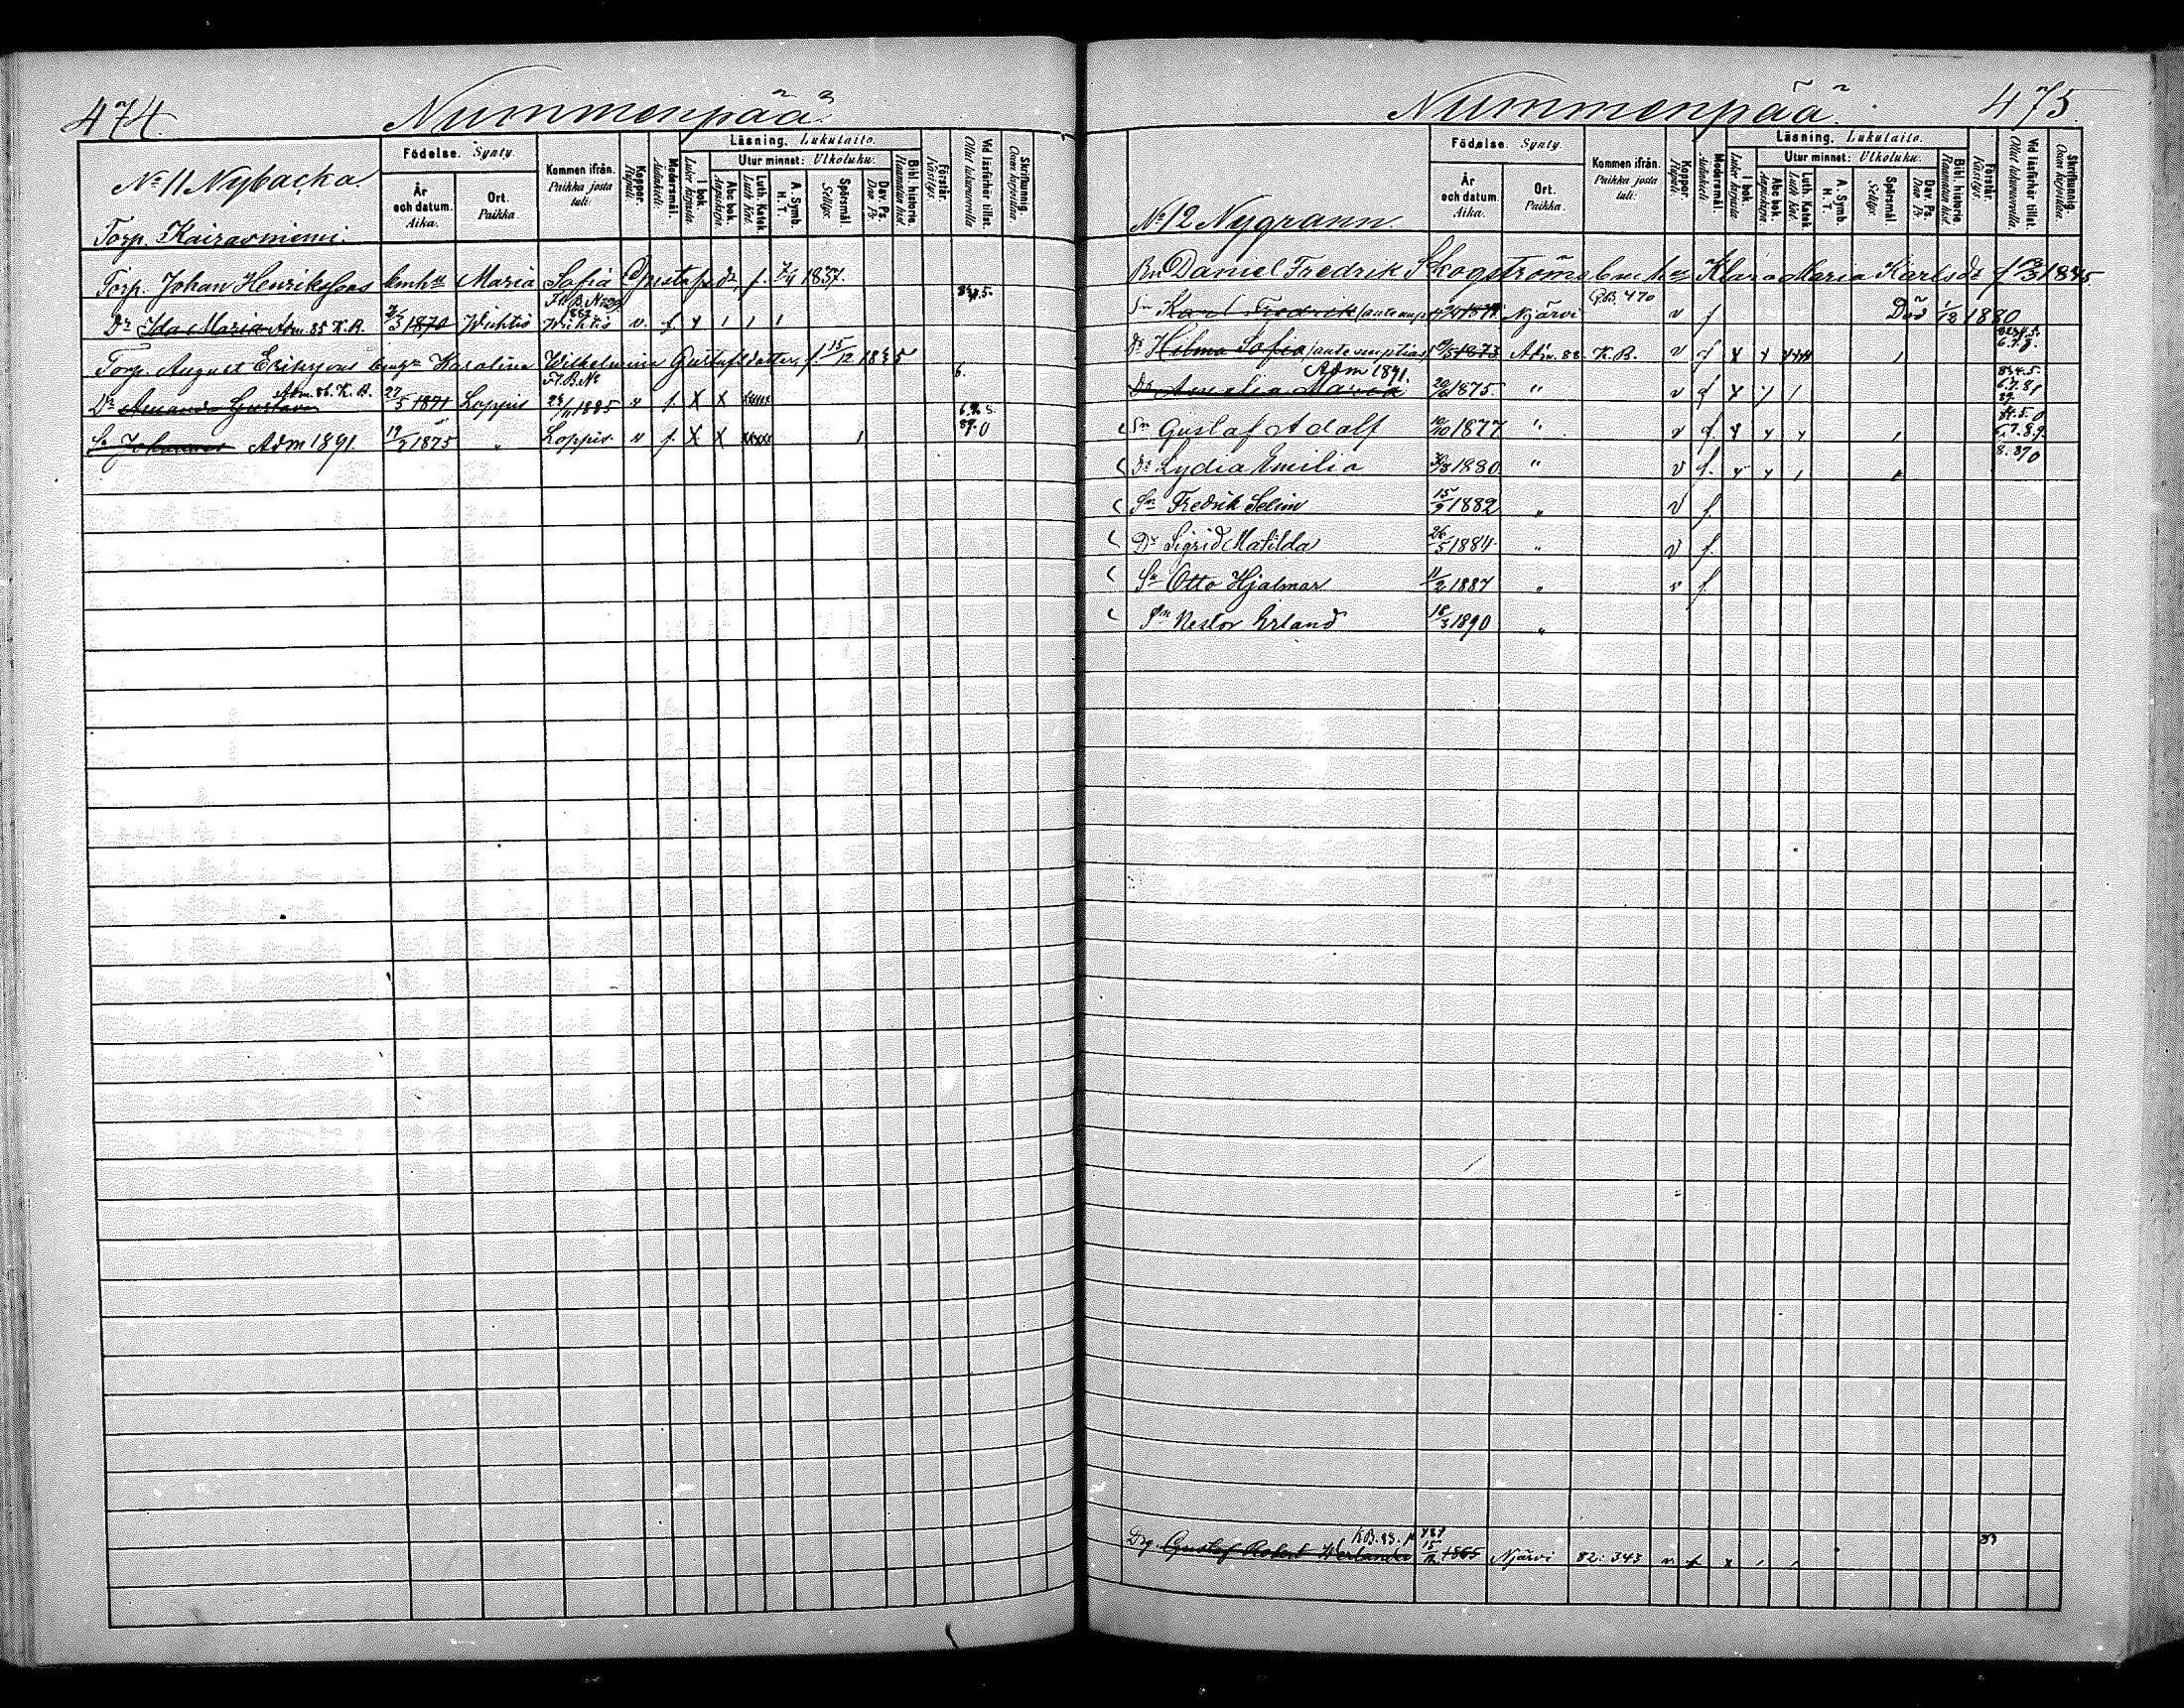 474.
Nummenpää
No 11 Nybacka.
Torp. Kairasniemi.
Födelse. Synty.
År och datum. Aika.
Ort. Paikka.
Kommen ifrån. Paikka josta tuli.
Koppor. Rupuli.
Modersmål.
Läsning. Lukutaito.
I bok. Lukee kirjasta
Utur minnet: Ulkoluku.
Abc bok. Aapiskirja.
Luth. Katek. Luth Kat.
A. Symb. H. T.
Spörsmål. Selitys.
Dav. Ps. Dav. Ps.
Bibl. historia. Raamatun hist.
Förstår. Käsitys.
Vid läsförhör tillst. Ollut lukuvuorolla
Skrifkunnig. Osaa kirjoittaa.
Torp. Johan Henrikssons Maria Sofia Gustafsdr, f. 7/4 1837.
Dr Ida Maria Adm. 85 K.B. 3 1870 Wichtis Wichtis v. f
Torp. August Erikssons Karolina Wilhelmina Gustafsdotter, f. 15/12 1845
6.
Dr Amanda Gustava Adm. 86. K.B. 27/5 1871 Loppis 1885 v f. X X
Sn Johannes Adm 1891. 19/2 1875 " Loppis v f. X X
Nummenpää.
475.
No 12 Nygrann.
Födelse. Synty.
År och datum. Aika.
Ort. Paikka.
Kommen ifrån. Paikka josta tuli:
Koppor. Rupuli.
Modersmål.
Läsning. Lukutaito.
I bok. Lukee kirjasta
Utur minnet: Ulkoluku.
Abc bok. Aapiskirja.
Luth. Katek. Luth Kat.
A. Symb. H. T.
Spörsmål. Selitys.
Dav. Ps. Dav. Ps.
Bibl. historia. Raamatun hist.
Förstår. Käsitys.
Vid läsförhör tillst. Ollut lukuvuorolla.
Skrifkunnig. Osaa kirjoittaa.
Bn Daniel Fredrik Skogström Klara Maria Karlsdr f 1845.
Sn Karl Fredrik Njärvi 470 v f Död 1/12 1880
Dr Hilma Sofia 1873 Adm. 88 K.B. v f
Dr Amalia Maria Adm 1891. 1875. " v f
Sn Gustaf Adolf 10/10 1877 " v f.
Dr Lydia Emilia 1880 " v f.
Sn Fredrik Selim 15/9 1882 " v f.
Dr Sigrid Matilda 26/5 1884 " v f.
Sn Otto Hjalmar 11/2 1887 " v f.
Sn Nestor Erland 1890 "
Drg. Gustaf Robert Werlander 1865 Njärvi 82: 343 v f x